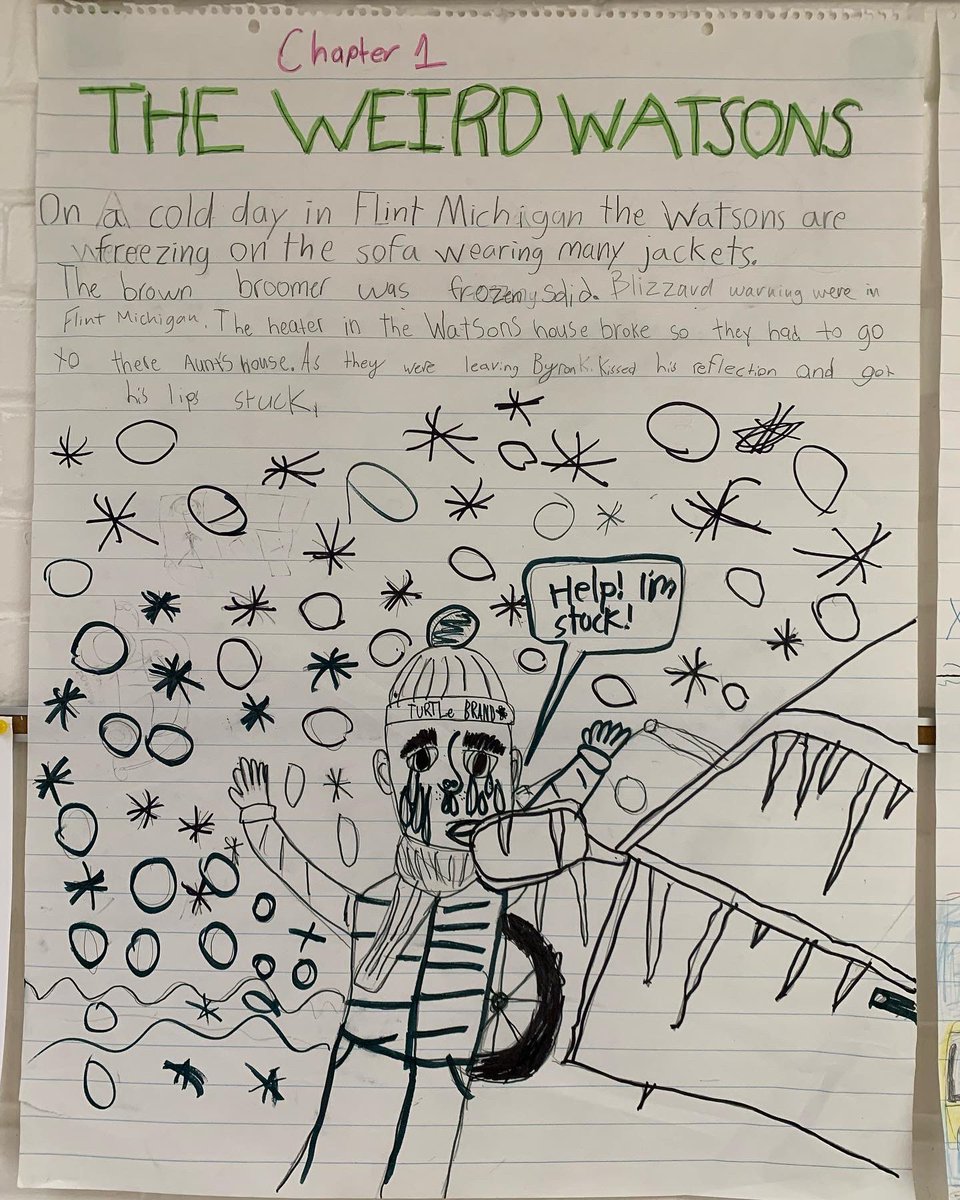 Chapter 1
THE WEIRD WATSONS
On a cold day in Flint Michigan the Watsons are
freezing on the sofa wearing many jackets.
The brown broomer was frozen solid. Blizzard warning were in
Flint Michigan. The heater in the Watsons house broke so they had to go
to there Aunt's house. As they were leaving Byron K. Kissed his reflection and got
his lips stuck.
Help! I'm
stuck!
TURTLe BRAND